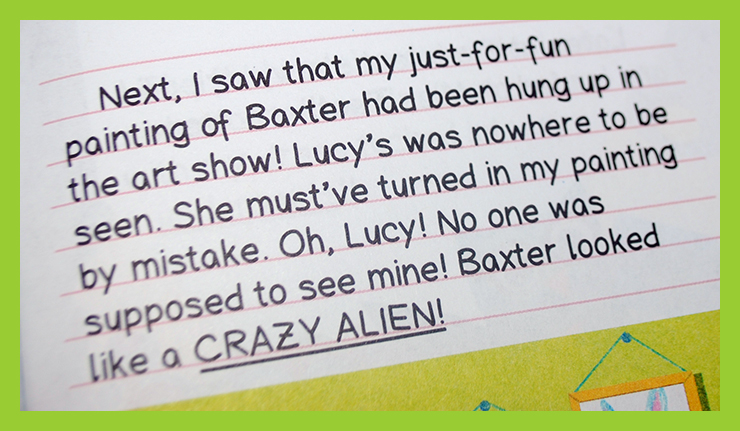 Next, I saw that my just-for-fun
painting of Baxter had been hung up in
the art show! Lucy's was nowhere to be
seen. She must've turned in my painting
by mistake. Oh, Lucy! No one was
supposed to see mine! Baxter looked
like a CRAZY ALIEN!